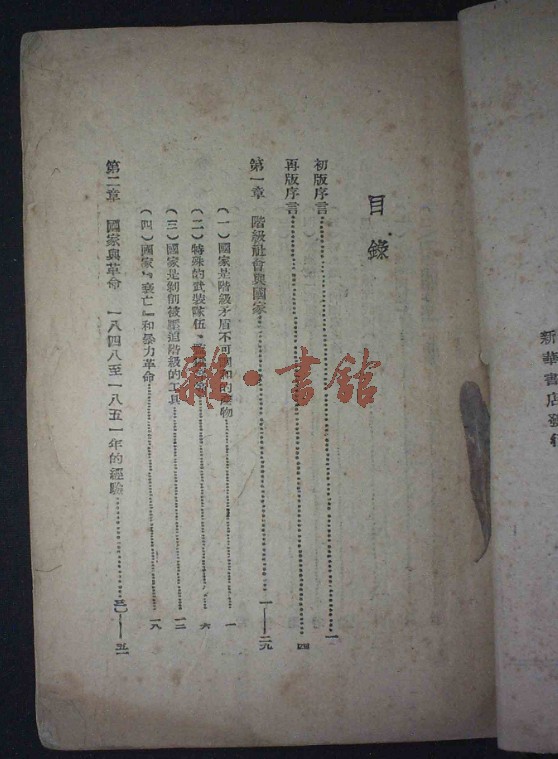 新華書店發行
目錄
初版序言 一
再版序言 四
第一章 階級社會與國家 一——二九
(一)國家是階級矛盾不可調和的產物 一
(二)特殊的武裝隊伍, 六
(三)國家是剝削被壓迫階級的工具 一二
(四)國家『衰亡』和暴力革命 一八
第二章 國家與革命 一八四八至一八五一年的經驗 三〇——五一
雜·書館